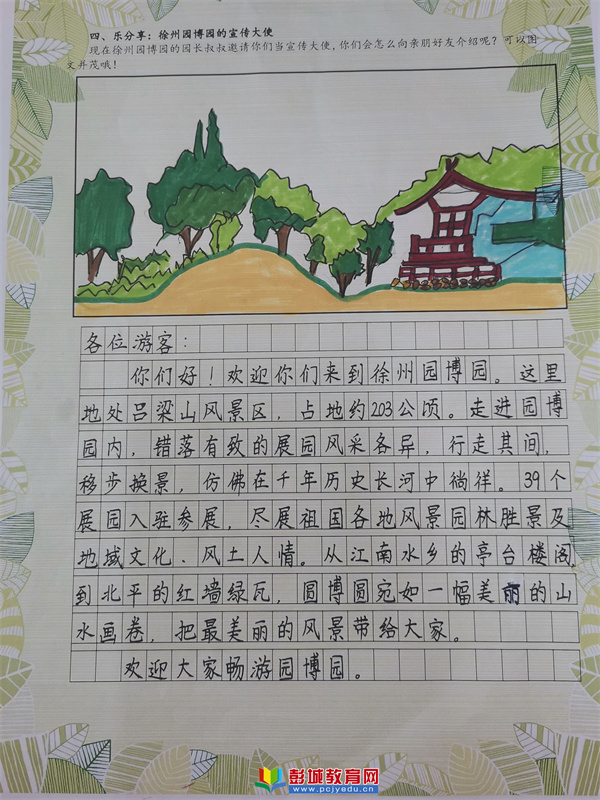 四、乐分享：徐州园博园的宣传大使
现在徐州园博园的园长叔叔邀请你们当宣传大使，你们会怎么向亲朋好友介绍呢？可以图
文并茂哦！
各位游客：
你们好！欢迎你们来到徐州园博园。这里
地处吕梁山风景区，占地约203公顷。走进园博
园内，错落有致的展园风采各异，行走其间，
移步换景，仿佛在千年历史长河中徜徉。39个
展园入驻参展，尽展祖国各地风景园林胜景及
地域文化、风土人情。从江南水乡的亭台楼阁
到北平的红墙绿瓦，圆博圆宛如一幅美丽的山
水画卷，把最美丽的风景带给大家。
欢迎大家畅游园博园。
彭城教育网
www.pcjyedu.cn